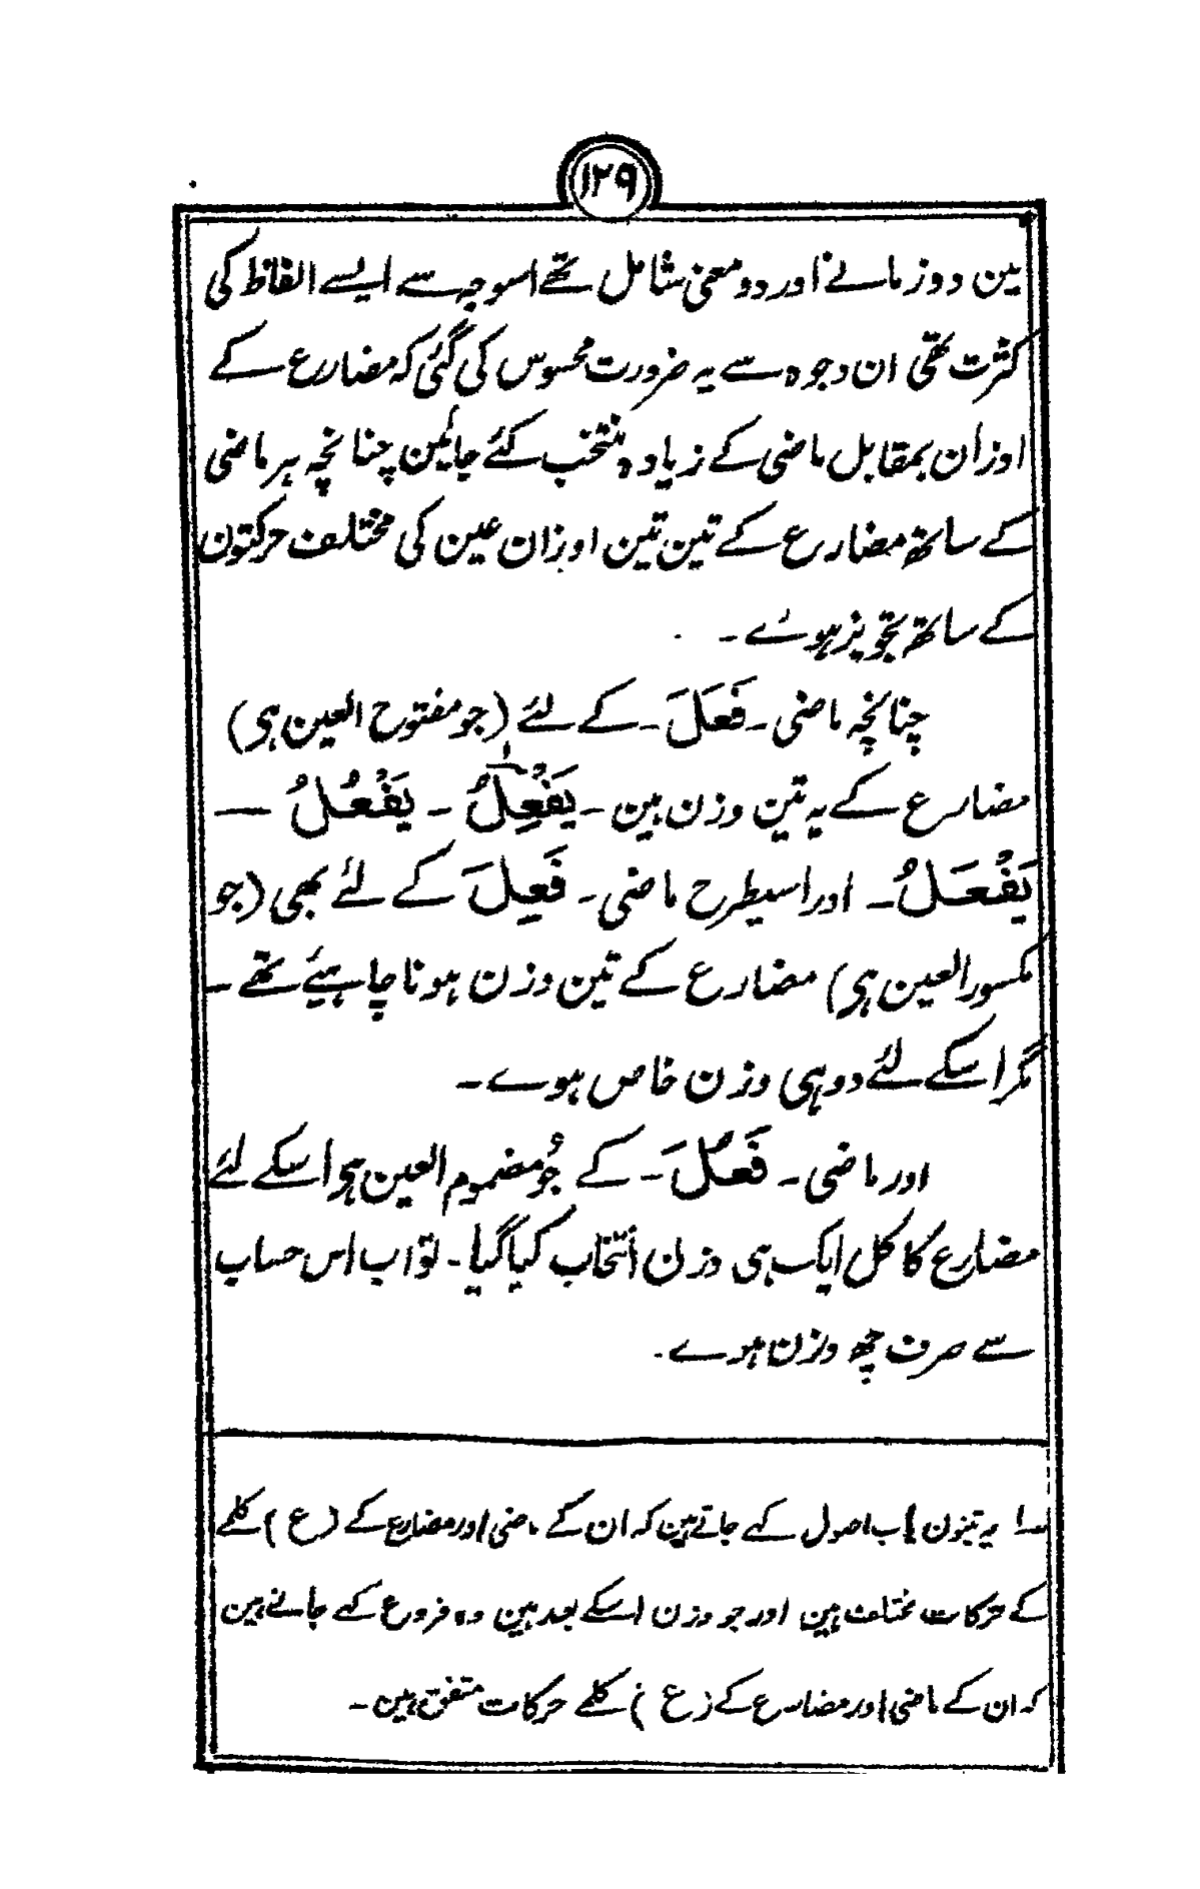 ۱۲۹
مین دو زمانے اور دو معنی شامل تھے اسوجہ سے ایسے الفاظ کی
کثرت تھی ان وجوہ سے یہ ضرورت محسوس کی گئی کہ مضارع کے
اوزان بمقابل ماضی کے زیادہ منتخب کئے جائین چنانچہ ہر ماضی
کے ساتھ مضارع کے تین تین اوزان عین کی مختلف حرکتون
کے ساتھ تجویز ہوئے ۔
چنانچہ ماضی ۔ فَعَلَ ۔ کے لئے (جو مفتوح العین ہی)
مضارع کے یہ تین وزن ہین ۔ یَفْعِلُ ۔ یَفْعُلُ —
یَفْعَلُ ۔ اور اسیطرح ماضی ۔ فَعِلَ کے لئے بھی (جو
مکسور العین ہی) مضارع کے تین وزن ہونا چاہیئے تھے ۔
مگر اسکے لئے دو ہی وزن خاص ہوے ۔
اور ماضی ۔ فَعُلَ ۔ کے جُو مضموم العین ہی اسکے لئے
مضارع کا کل ایک ہی وزن انتخاب کیا گیا ۔ تو اب اس حساب
سے صرف چھ وزن ہوے ۔
؎۱ یہ تینون باب اصول کہے جاتے ہین کہ ان کے ماضی اور مضارع کے (ع) کلمے
کے حرکات مختلف ہین اور جو وزن اسکے بعد ہین وہ فروع کہے جاتے ہین
کہ ان کے ماضی اور مضارع کے (ع) کلمے حرکات متفق ہین ۔